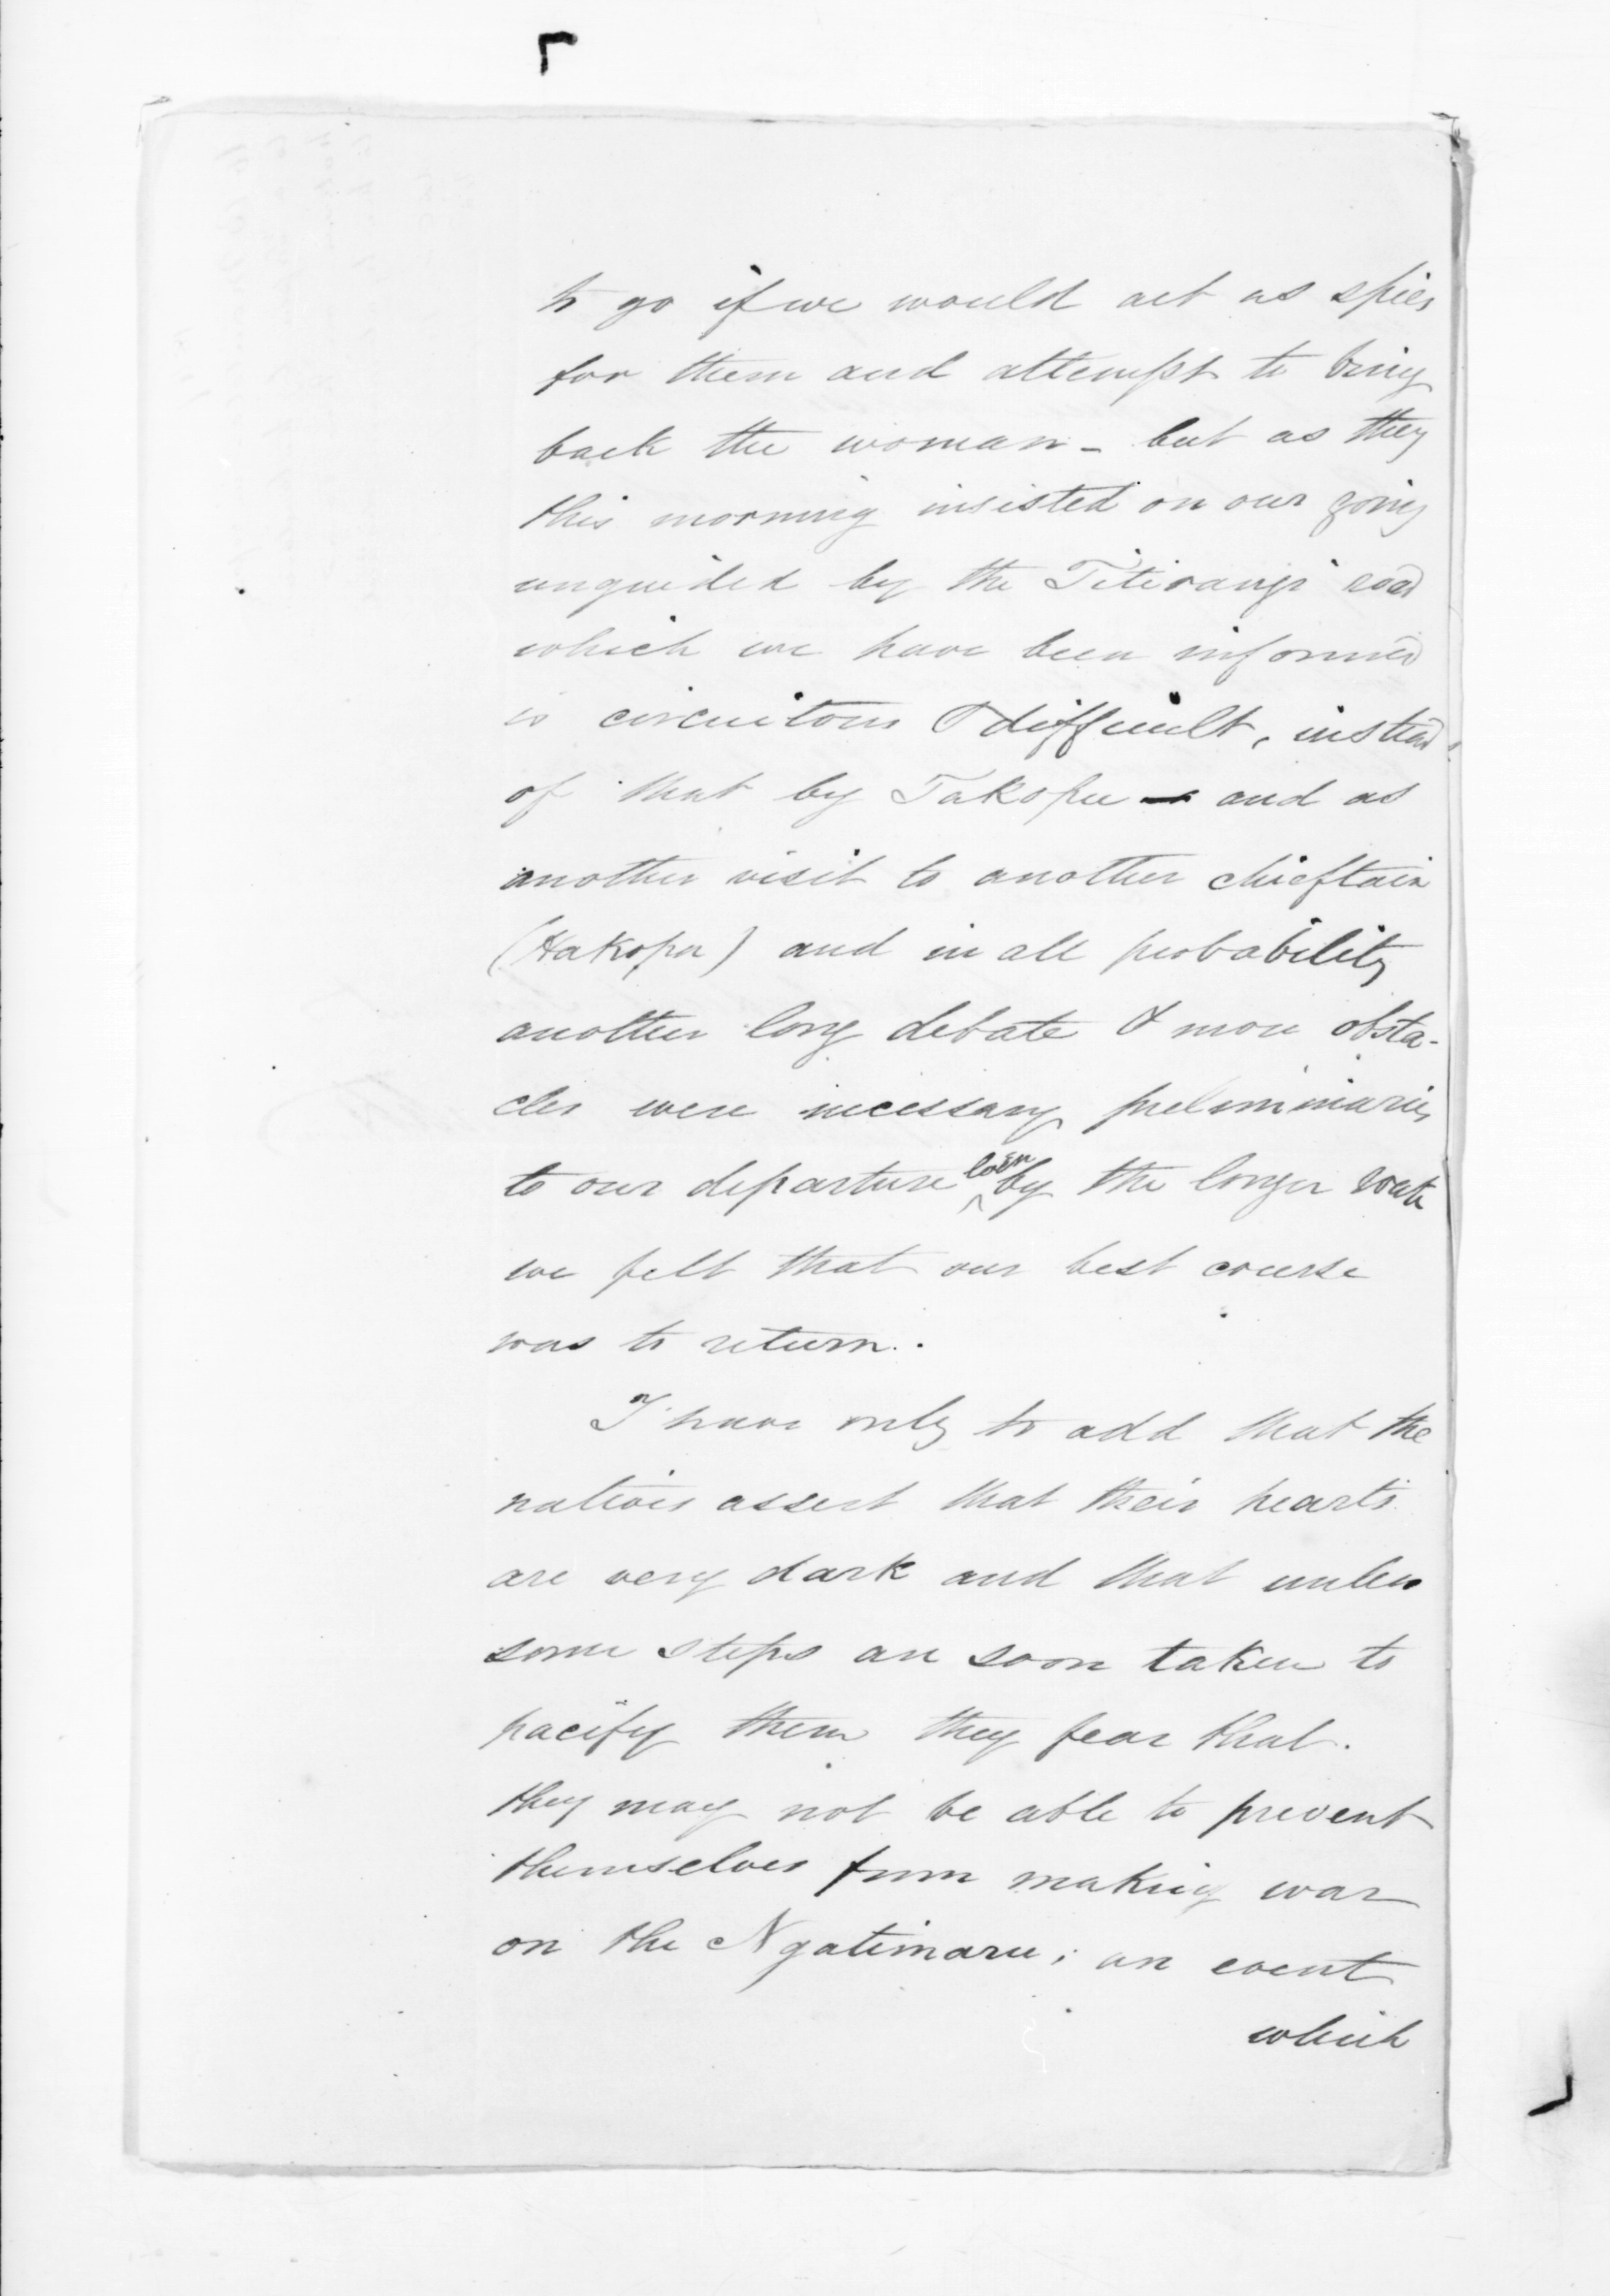 to go if we would act as spies
for them and attempt to bring
back the woman - but as they
this morning insisted on our going
unguided by the Titirangi road
which we have been informed
is circuitous & difficult, instead
of that by Takopu - and as
another visit to another chieftain
(Hakopa) and in all probability
another long debate & more obsta-
cles were necessary preliminaries
to our departure even by the longer route
we felt that our best course
was to return.
I have only to add that the
natives assert that their hearts
are very dark and that unless
some steps are soon taken to
pacify them they fear that.
they may not be able to prevent
themselves from making war
on the Ngatimaru; an event
which